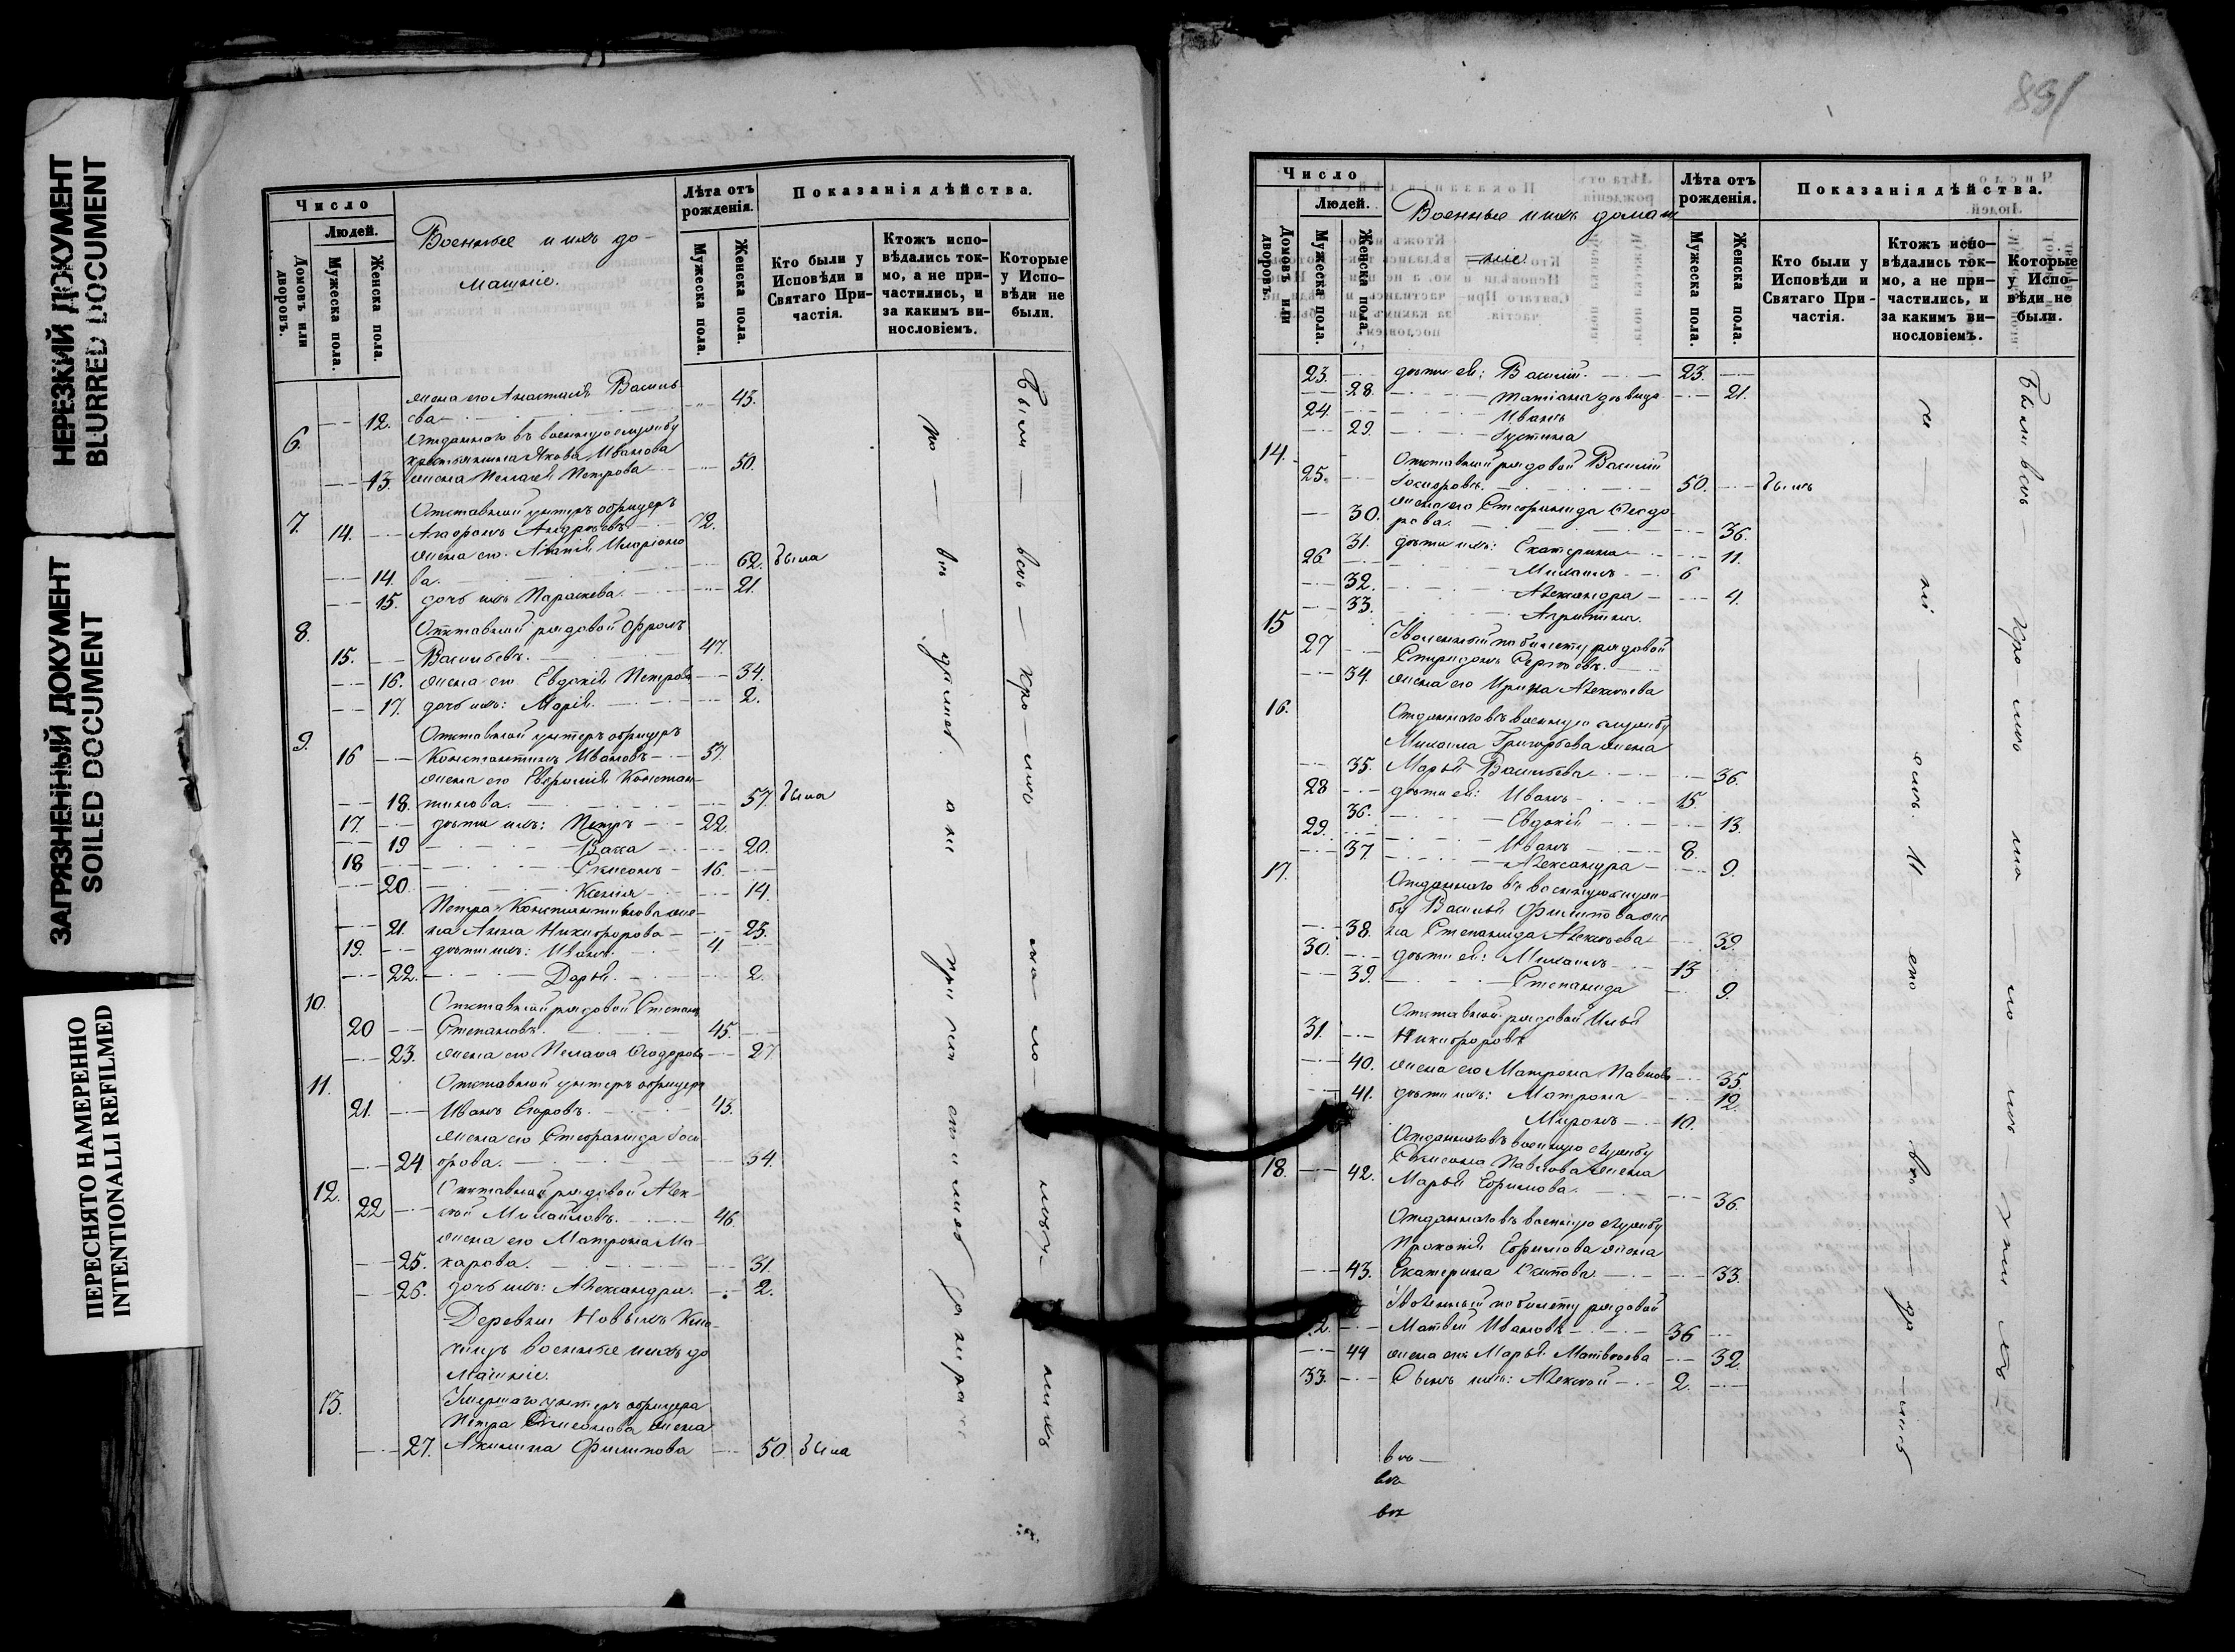 НЕРЕЗКИЙ ДОКУМЕНТ
BLURRED DOCUMENT
ЗАГРЯЗНЕННЫЙ ДОКУМЕНТ
SOILED DOCUMENT
ПЕРЕСНЯТО НАМЕРЕННО
INTENTIONALLI REFILMED
Число
Людей.
Домовъ или дворовъ.
Мужеска пола.
Женска пола.
Военные и ихъ до-
машніе.
Лѣта отъ рожденія.
Мужеска пола.
Женска пола.
Показанія дѣйства.
Кто были у Исповѣди и Святаго Причастія.
Ктожъ исповѣдались токмо, а не причастились, и за какимъ винословіемъ.
Которые у Исповѣди не были.
жена его Анастасія Василь
12. ева 45.
6. Отданнаго въ военную службу
крестьянина Якова Иванова
13. жена Пелагія Петрова 50.
7. Отставный унтеръ офицеръ
14. Андреевъ 72.
жена его Иларіоно
14. ва. 62. была
15. дочь ихъ Параскева. 21.
8. Отставный рядовой Фролъ
15. Васильевъ. 47.
16. жена его Евдокія Петрова 34.
17. дочь ихъ: Марія. 2.
9. Отставный унтеръ офицеръ
16 Константинъ Ивановъ 57.
жена его Евфимія Констан-
18. тинова. 57. была
17. дѣти ихъ: Петръ 22.
19 Васса 20.
18 Симеонъ 16.
20. Ксенія 14.
Петра Константинова же-
21. на Анна Никифорова 25.
19. дѣти ихъ: Иванъ. 4
22. Дарья. 2.
10. Отставный рядовой Степанъ
20 Степановъ. 45.
23. жена его Пелагія Ѳеодорова 27
11. Отставный унтеръ офицеръ
21. Иванъ Егоровъ. 43.
жена его Стефанида
24 34.
12. Отставный рядовой Алек-
22 сѣй Михайловъ. 46.
жена его Матрона Ма-
25. карова. 31.
26. дочь ихъ: Александра. 2.
Деревни Новыхъ
военные и ихъ до
машніе.
13. Умершаго унтеръ офицера
Петра Симеонова жена
27. Акилина Филипова 50. была
881
Число
Людей.
Домовъ или дворовъ.
Мужеска пола.
Женска пола.
Военные и ихъ домаш
ніе
Лѣта отъ рожденія.
Мужеска пола.
Женска пола.
Показанія дѣйства.
Кто были у Исповѣди и Святаго Причастія.
Ктожъ исповѣдались токмо, а не причастились, и за какимъ винословіемъ.
Которые у Исповѣди не были.
23. дѣти ея: Василій. 23.
28. Татіана 21.
24. Иванъ
29. Іустина
14. Отставный рядовой Василій
25. 50. былъ
жена его Стефанида Ѳеодо
30. рова. 36.
31. дѣти ихъ: Екатерина 11.
26 Михаилъ 6
32. Александра 4.
33. Агрипина.
15 Уволенный по билету рядовой
27 Спиридонъ Сергѣевъ.
34. жена его Ирина Алексѣева
16. Отданнаго въ военную службу
Михаила Григорьева жена
35. Марья Васильева 36.
28 дѣти ея: Иванъ 15.
36. Евдокія 13.
29. Иванъ 8.
37. Александра 9.
17. Отданнаго въ военную служ-
бу Василья Филипова же
38. на Степанида Алексѣева 39.
30. дѣти ея: Михаилъ 13
39. Степанида 9.
Отставный рядовой Илья
31. Никифоровъ
40. жена его Матрона Павлова 35.
41. дѣти ихъ: Матрона 12.
Миронъ 10.
Отданнаго въ военную службу
18. Симеона Павлова жена
42. Марья Ефимова. 36.
Отданнаго въ военную службу
Прокопія Ефимова жена
43. Екатерина 33.
Уволенный по билету рядовой
Матвѣй Ивановъ 36
44 жена его Марья Матвѣева 32.
33. Сынъ ихъ: Алексѣй 2.
въ
въ
въ